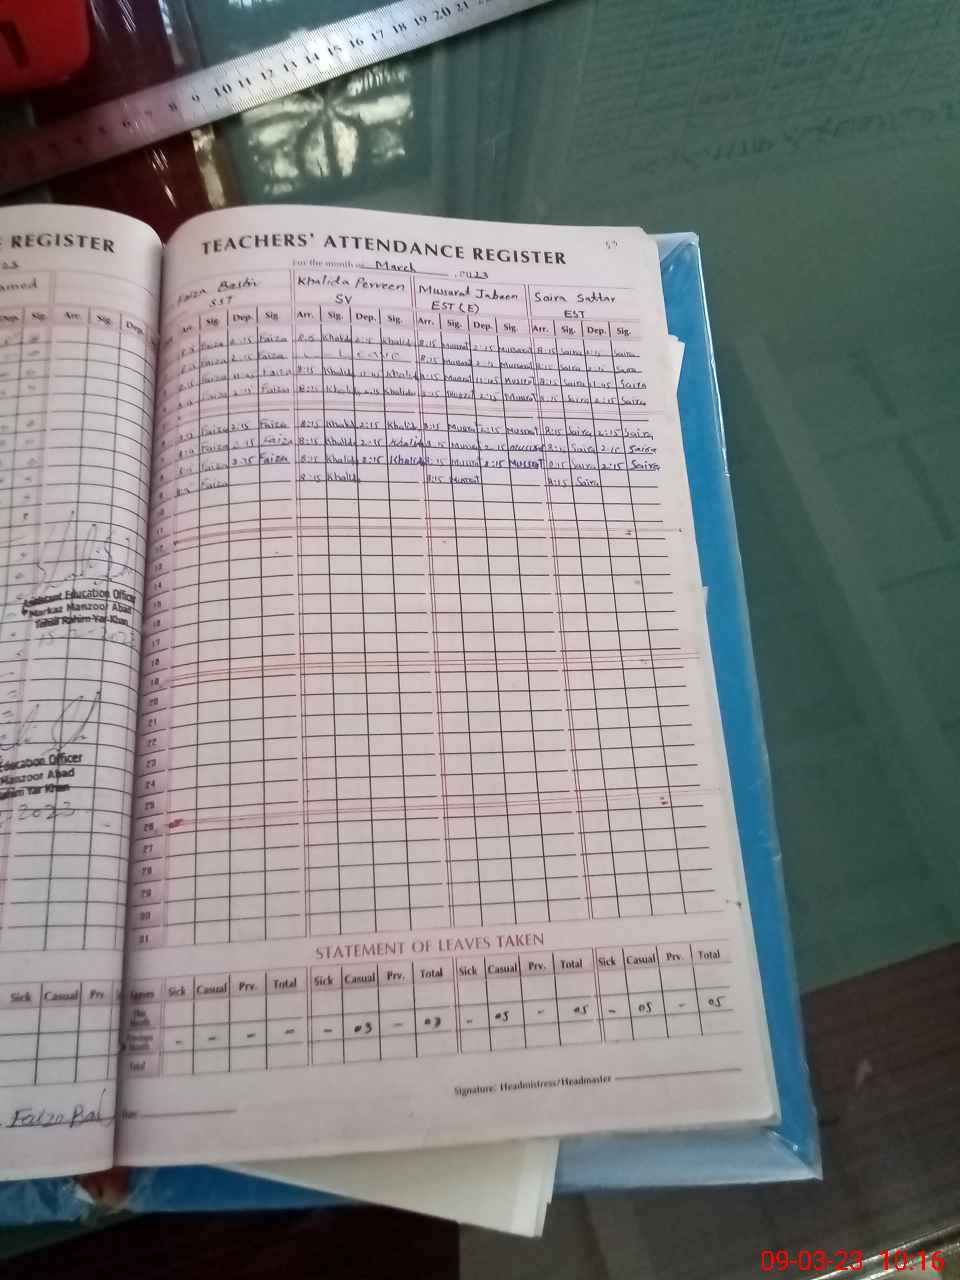 REGISTER
TEACHERS' ATTENDANCE REGISTER
For the month of March 2023
Faiza Bashir Khalida Perveen Mussarat Jabeen Saira Sattar
SST SV EST (E) EST
Dep. Sig. Arr. Sig. Dep. Arr. Sig. Dep. Sig Arr. Sig. Dep. Sig. Arr. Sig. Dep. Sig. Arr. Sig. Dep. Sig.
Faiza 2:15 Faiza 8:15 Khalida 2:15 Khalida 8:15 Mussarat 2:15 Mussarat 8:15 Saira Saira
Faiza 2:15 Faiza 8:15 Mussarat 2:15 Mussarat 8:15 Saira 2:15 Saira
8:15 Faiza 11:45 Faiza 8:15 Khalida 11:45 Khalida 8:15 Mussarat 11:45 Mussarat 8:15 Saira 11:45 Saira
8:15 Faiza 2:15 Faiza 8:15 Khalida 2:15 Khalida 8:15 Mussarat 2:15 Mussarat 8:15 Saira 2:15 Saira
8:15 Faiza 2:15 Faiza 8:15 Khalida 2:15 Khalida 8:15 Mussarat 2:15 Mussarat 8:15 Saira 2:15 Saira
8:15 Faiza 2:15 Faiza 8:15 Khalida 2:15 Khalida 8:15 Mussarat 2:15 Mussarat 8:15 Saira 2:15 Saira
8:15 Faiza 2:15 Faiza 8:15 Khalida 2:15 Khalida 8:15 Mussarat 2:15 Mussarat 8:15 Saira 2:15 Saira
Faiza 8:15 Khalida 8:15 Mussarat 8:15 Saira
10
11
12
13
14
15
16
17
18
19
20
21
22
23
24
25
26
27
28
29
30
31
Assistant Education Officer
Markaz Manzoor Abad
Tehsil Rahim Yar Khan
Education Officer
Manzoor Abad
Rahim Yar Khan
2023
STATEMENT OF LEAVES TAKEN
Sick Casual Prv. Leaves Sick Casual Prv. Total Sick Casual Prv. Total Sick Casual Prv. Total Sick Casual Prv. Total
This Month
Previous Month - - - - - 03 - 03 - 05 - 05 - 05 - 05
Total
Signature: Headmistress/Headmaster
09-03-23 10:16